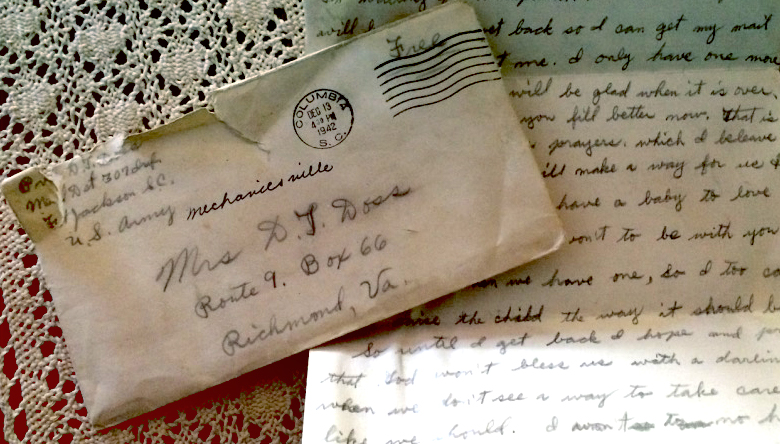 Free
COLUMBIA
DEC 13
4 30 PM
1942
S. C.
Det 307th
Jackson S.C.
U.S. Army
Mechanicsville
Mrs D.T. Doss
Route 9. Box 66
Richmond, Va.
will get back so I can get my mail
me. I only have one more
will be glad when it is over.
you fill better now. That is
prayers. which I beleave
ill make a way for us
have a baby to love
won't to be with you
we have one, so I too
the child the way it should
So until I get back I hope and
that God won't bless us with a darlin
when we don't see a way to take care
like we should. I won't no